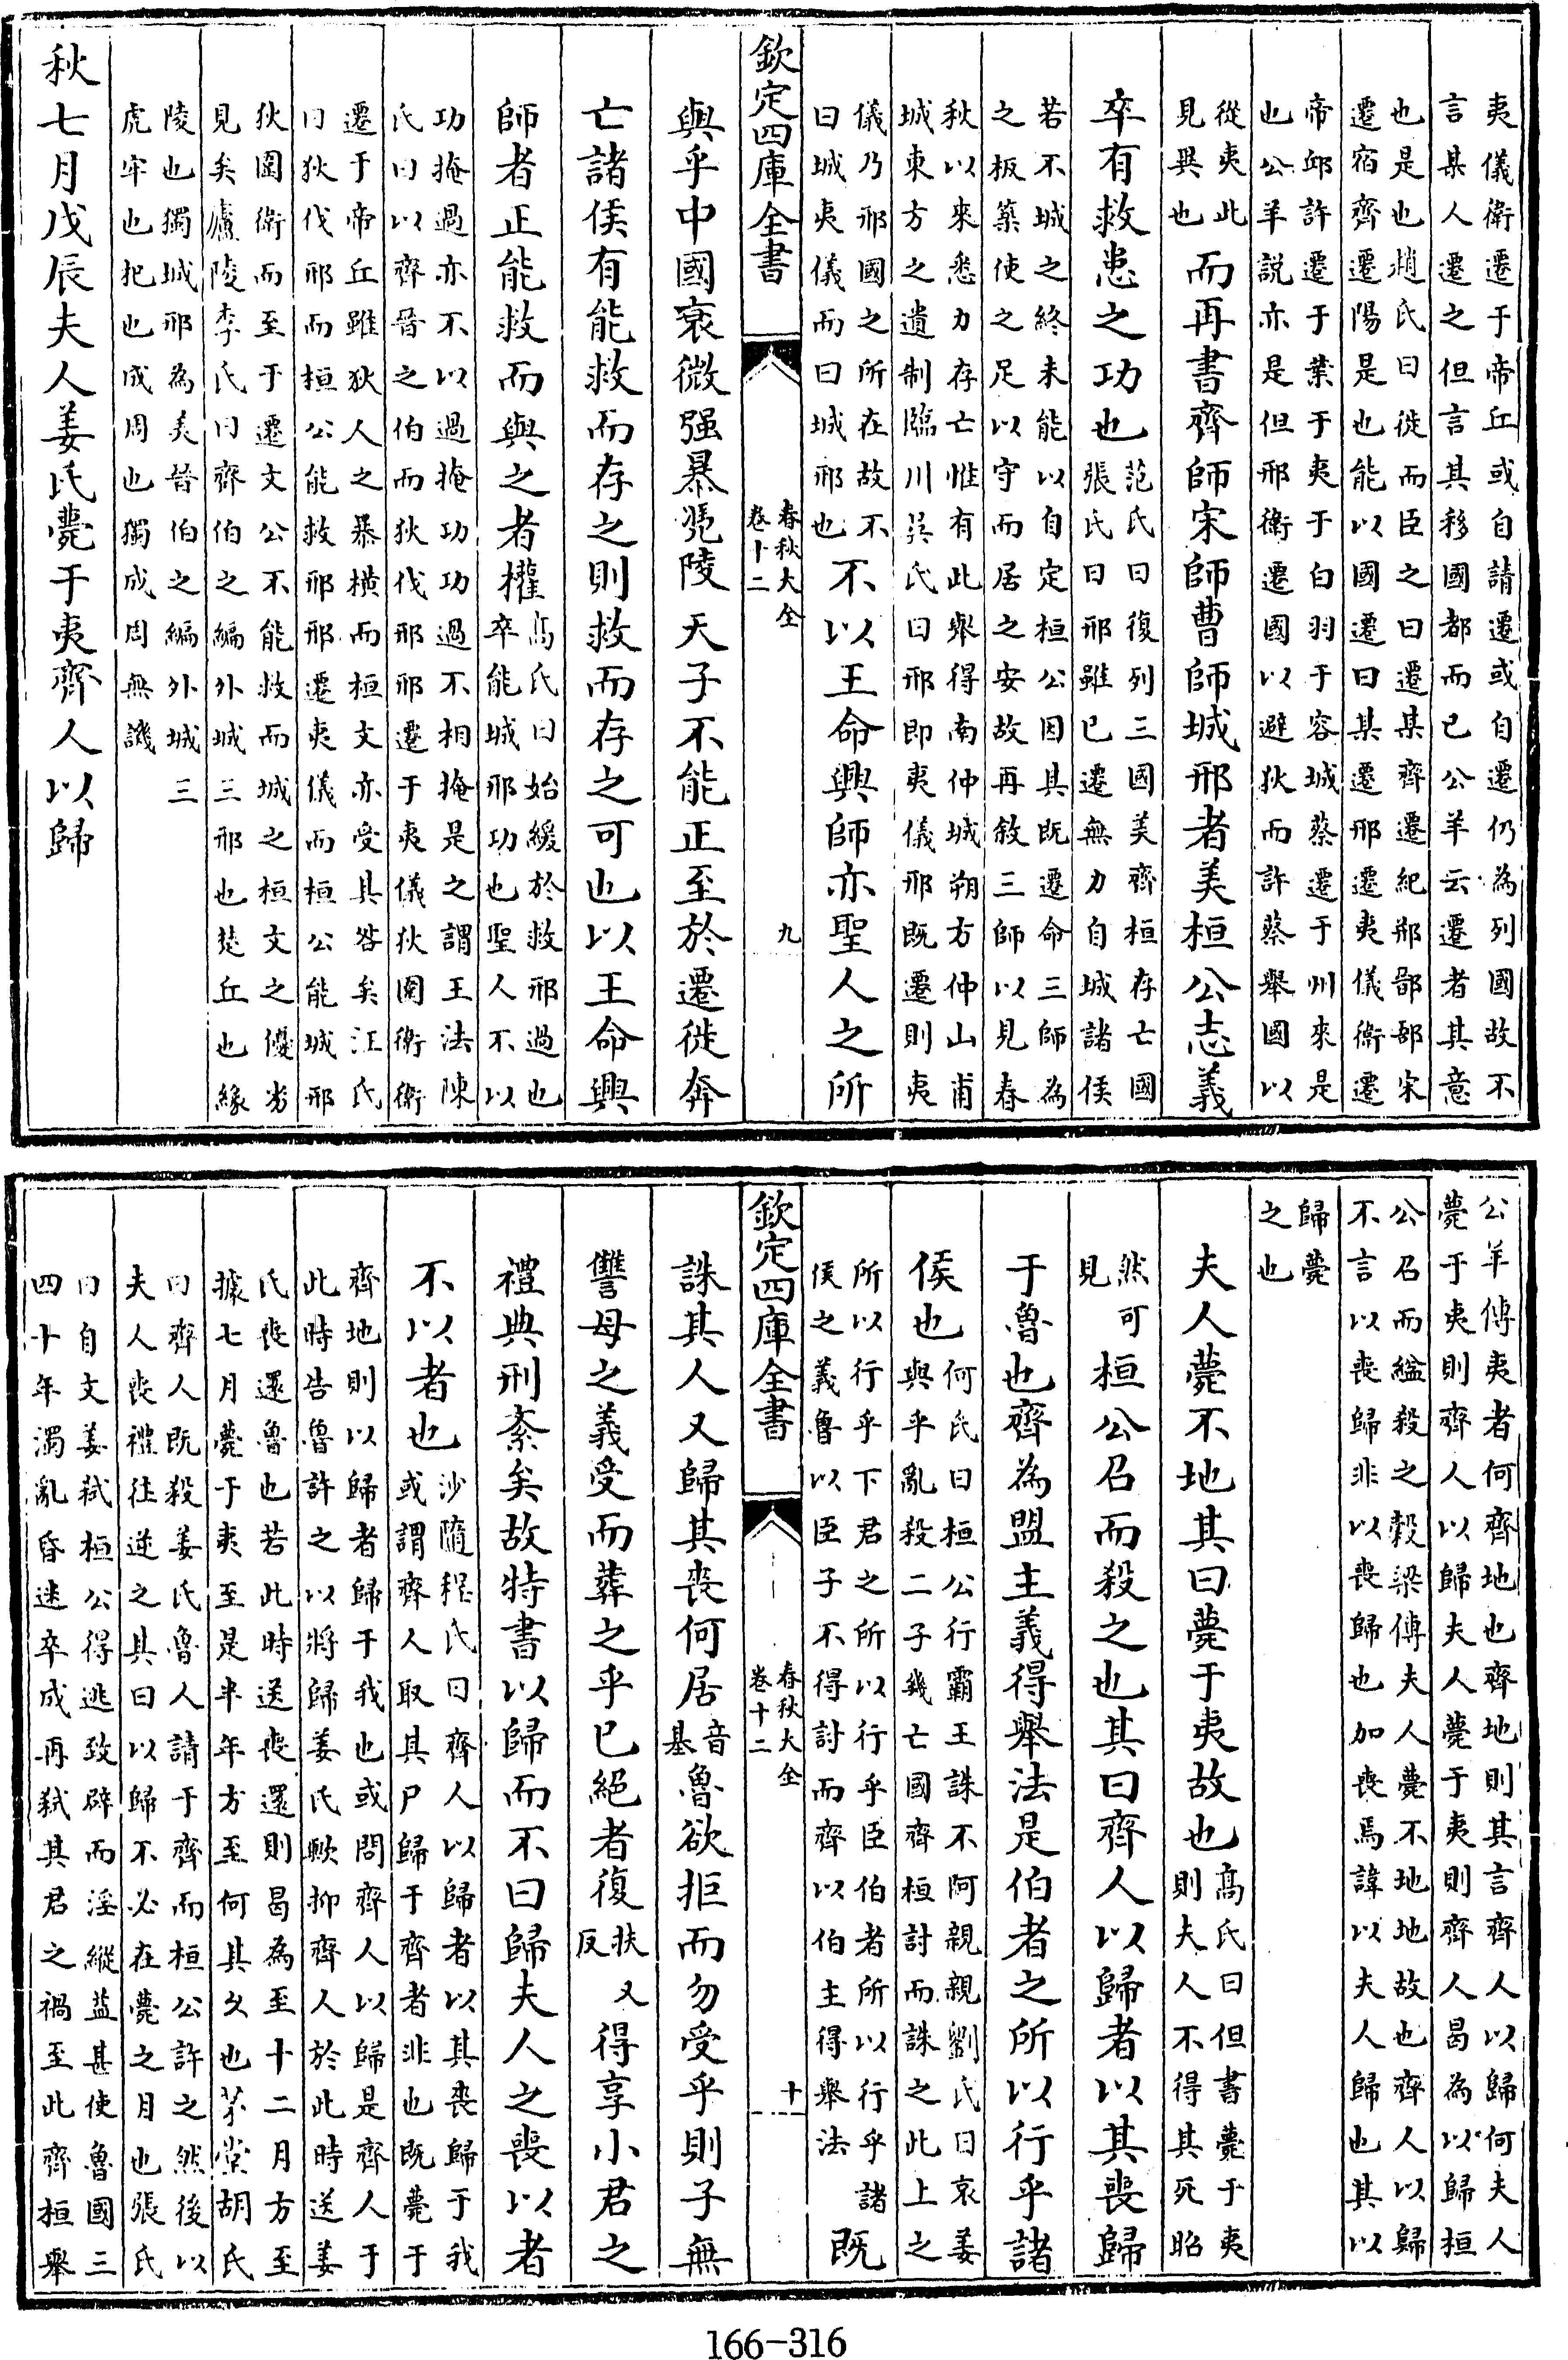 夷儀衛遷于帝丘或自請遷或自遷仍為列國故不
言某人遷之但言其移國都而已公羊云遷者其意
也是也趙氏曰徙而臣之曰遷某齊遷紀郱鄑郚宋
遷宿齊遷陽是也能以國遷曰某遷邢遷夷儀衛遷
帝邱許遷于葉于夷于白羽于容城蔡遷于州來是
也公羊説亦是但邢衛遷國以避狄而許蔡舉國以
從夷此
見異也
而再書齊師宋師曹師城邢者美桓公志義
卒有救患之功也
范氏曰復列三國美齊桓存亡國
張氏曰邢雖已遷無力自城諸侯
若不城之終未能以自定桓公因其既遷命三師為
之板築使之足以守而居之安故再敘三師以見春
秋以來悉力存亡惟有此舉得南仲城朔方仲山甫
城東方之遺制臨川吳氏曰邢即夷儀邢既遷則夷
儀乃邢國之所在故不
曰城夷儀而曰城邢也
不以王命興師亦聖人之所
欽定四庫全書
春秋大全
卷十二
九
與乎中國衰微强暴凴陵天子不能正至於遷徙奔
亡諸侯有能救而存之則救而存之可也以王命興
師者正能救而與之者權
髙氏曰始緩於救邢過也
卒能城邢功也聖人不以
功掩過亦不以過掩功功過不相掩是之謂王法陳
氏曰以齊晉之伯而狄伐邢邢遷于夷儀狄圍衛衛
遷于帝丘雖狄人之暴横而桓文亦受其咎矣汪氏
曰狄伐邢而桓公能救邢邢遷夷儀而桓公能城邢
狄圍衛而至于遷文公不能救而城之桓文之優劣
見矣廬陵李氏曰齊伯之編外城三邢也楚丘也緣
陵也獨城邢為美晉伯之編外城三
虎牢也杞也成周也獨成周無譏
秋七月戊辰夫人姜氏薨于夷齊人以歸
公羊傳夷者何齊地也齊地則其言齊人以歸何夫人
薨于夷則齊人以歸夫人薨于夷則齊人曷為以歸桓
公召而縊殺之穀梁傳夫人薨不地地故也齊人以歸
不言以喪歸非以喪歸也加喪焉諱以夫人歸也其以
歸薨
之也
夫人薨不地其曰薨于夷故也
髙氏曰但書薨于夷
則夫人不得其死昭
然可
見
桓公召而殺之也其曰齊人以歸者以其喪歸
于魯也齊為盟主義得舉法是伯者之所以行乎諸
侯也
何氏曰桓公行霸王誅不阿親親劉氏曰哀姜
與乎亂殺二子幾亡國齊桓討而誅之此上之
所以行乎下君之所以行乎臣伯者所以行乎諸
侯之義魯以臣子不得討而齊以伯主得舉法
既
欽定四庫全書
春秋大全
卷十二
十
誅其人又歸其喪何居
音
基
魯欲拒而勿受乎則子無
讐母之義受而葬之乎已絕者復
扶又
反
得享小君之
禮典刑紊矣故特書以歸而不曰歸夫人之喪以者
不以者也
沙隨程氏曰齊人以歸者以其喪歸于我
或謂齊人取其尸歸于齊者非也既薨于
齊地則以歸者歸于我也或問齊人以歸是齊人于
此時告魯許之以將歸姜氏歟抑齊人於此時送姜
氏喪還魯也若此時送喪還則曷為至十二月方至
據七月薨于夷至是半年方至何其久也茅堂胡氏
曰齊人既殺姜氏魯人請于齊而桓公許之然後以
夫人喪禮往逆之其曰以歸不必在薨之月也張氏
曰自文姜弑桓公得逃致辟而淫縱益甚使魯國三
四十年濁亂昏迷卒成再弑其君之禍至此齊桓舉
166-316